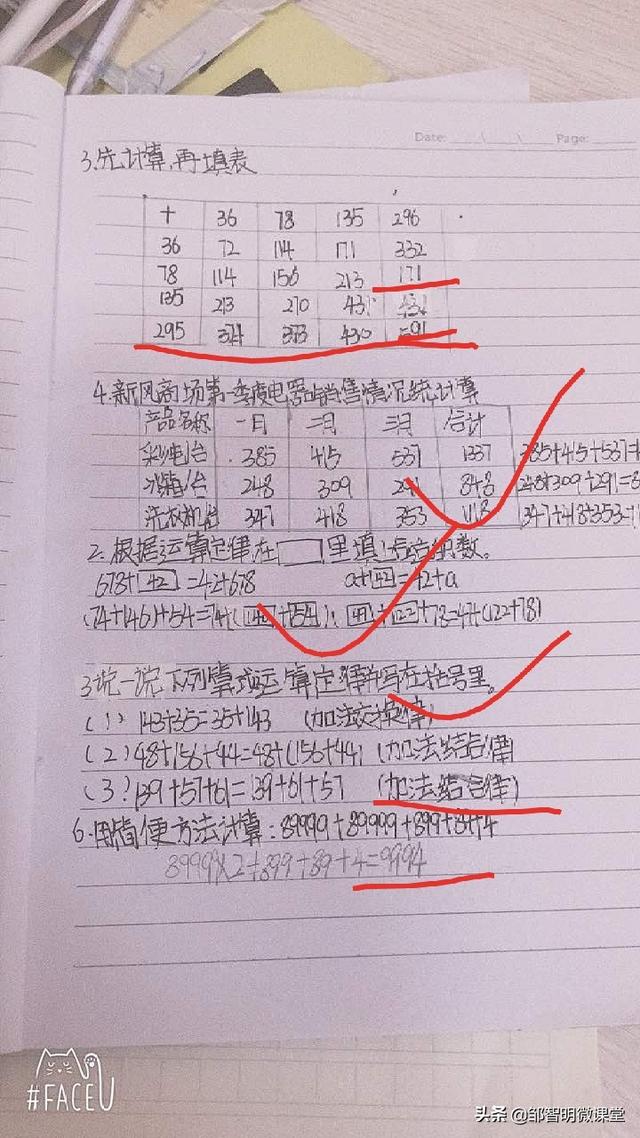 Date: Page:
3.先计算,再填表
+ 36 78 135 296
36 72 114 171 332
78 114 156 213 171
135 213 270 431
295 374 373 430 591
4.新风商场第一季度电器销售情况统计算
产品名称 一月 二月 三月 合计
彩电/台 385 415 537 1337 385+415+537=1
冰箱/台 248 309 291 848 248+309+291=8
洗衣机/台 347 418 353 1118 347+418+353=1
2.根据运算定律在□里填上适当的数。
678+42=42+678 a+42=42+a
3.说一说下列算式运算定律并写在括号里。
(1)143+35=35+143 (加法交换律)
(2)48+156+44=48+(156+44) (加法结合律)
(3)139+57+61=139+61+57 (加法结合律)
6.用简便方法计算:89999+89999+899+89+4
8999×2+899+89+4=9994
#FACEU
头条 @邹智明微课堂